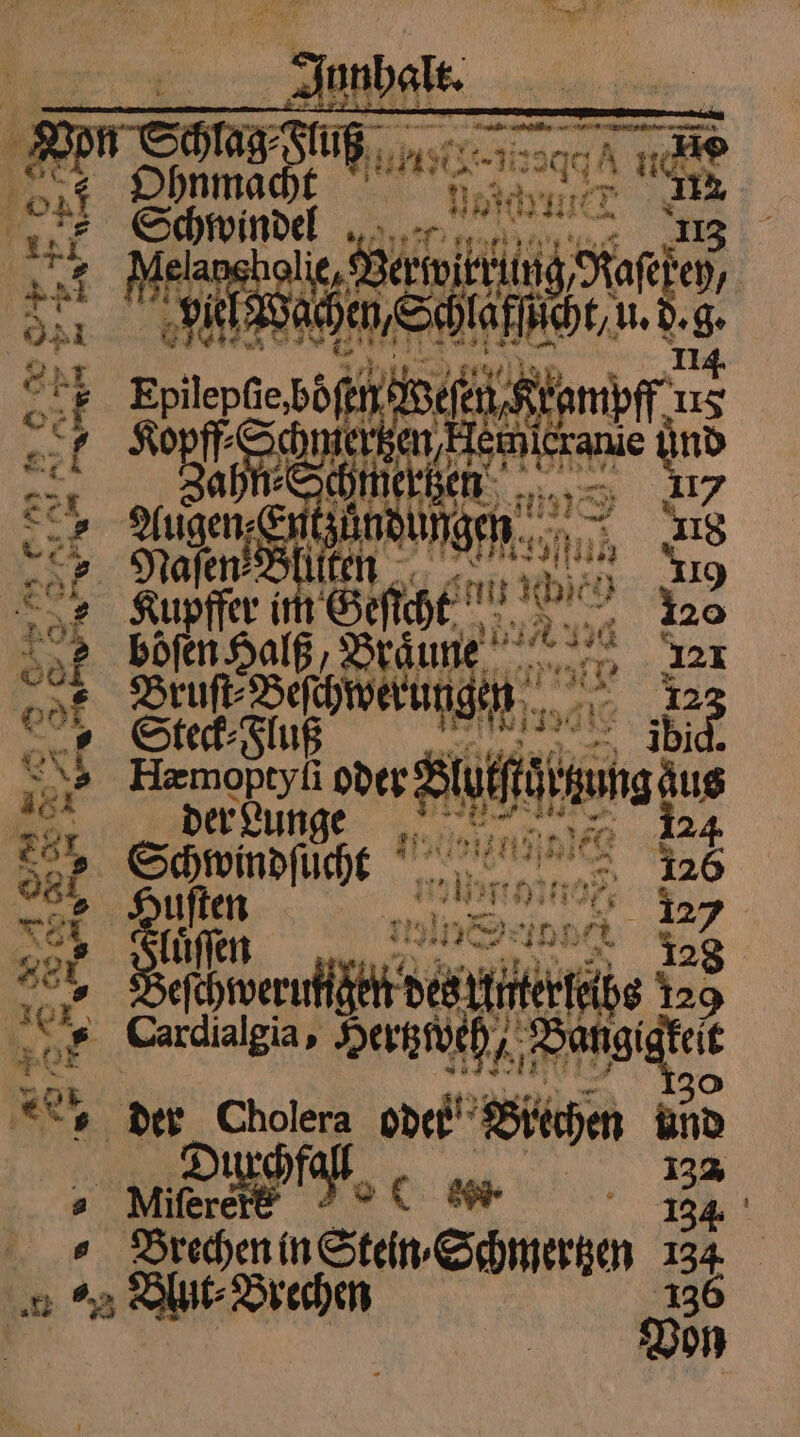 Innhalt.
Von Schlag-Fluß 110
⸗ Ohnmacht 112
⸗ Schwindel 113
⸗ Melancholie, Verwirrung, Raſerey,
viel Wachen, Schlafſucht, u. d. g.
114
⸗ Epilepſie, boͤſen Weſen, Krampff 115
⸗ Kopff-Schmertzen, Hemicranie und
Zahn-Schmertzen 117
⸗ Augen-Entzuͤndungen 118
⸗ Naſen-Bluten 119
⸗ Kupffer im Geſicht 120
⸗ boͤſen Halß, Braͤune 121
⸗ Bruſt-Beſchwerungen 123
⸗ Steck-Fluß ibid.
⸗ Hæmoptyſi oder Blutſtuͤrtzung aus
der Lunge 124
⸗ Schwindſucht 126
⸗ Huſten 127
⸗ Fluͤſſen 128
⸗ Beſchwerungen des Unterleibs 129
⸗ Cardialgia, Hertzweh, Bangigkeit
130
⸗ der Cholera oder Brechen und
Durchfall 132
⸗ Miſerere 134
⸗ Brechen in Stein-Schmertzen 134
⸗ Blut-Brechen 136
Von